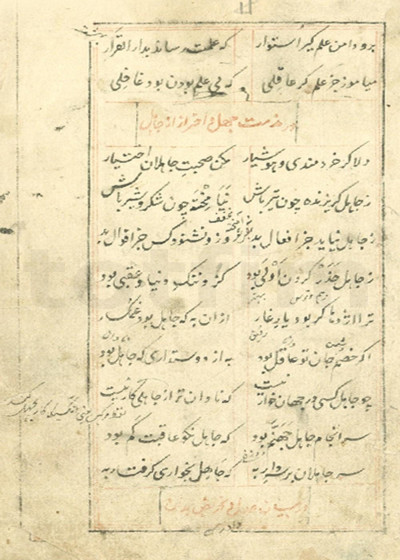 برو دامن علم گیر استوار که علمت رساند بدار القرار
میاموز جز علم گر عاقلی که بی علم بودن بود غافلی
در مذمت جهل و احتراز از جاهل
دلا گر خردمندی و هوشیار مکن صحبت جاهلان اختیار
ز جاهل گریزنده چون تیر باش نیامیخته چون شکر شیر باش
ز جاهل نیاید جز افعال بد وزو نشنود کس جز اقوال بد
ز جاهل حذر کردن اولی بود کزو ننگ دنیا و عقبی بود
ترا اژدها گر بود یار غار ازان به که جاهل بود غمگسار
اگر خصم جان تو عاقل بود به از دوستداری که جاهل بود
چو جاهل کسی در جهان خوار نیست که نادان تر از جاهلی کار نیست
سرانجام جاهل جهنم بود که جاهل نکو عاقبت کم بود
سر جاهلان بر سر دار به که جاهل بخواری گرفتار به